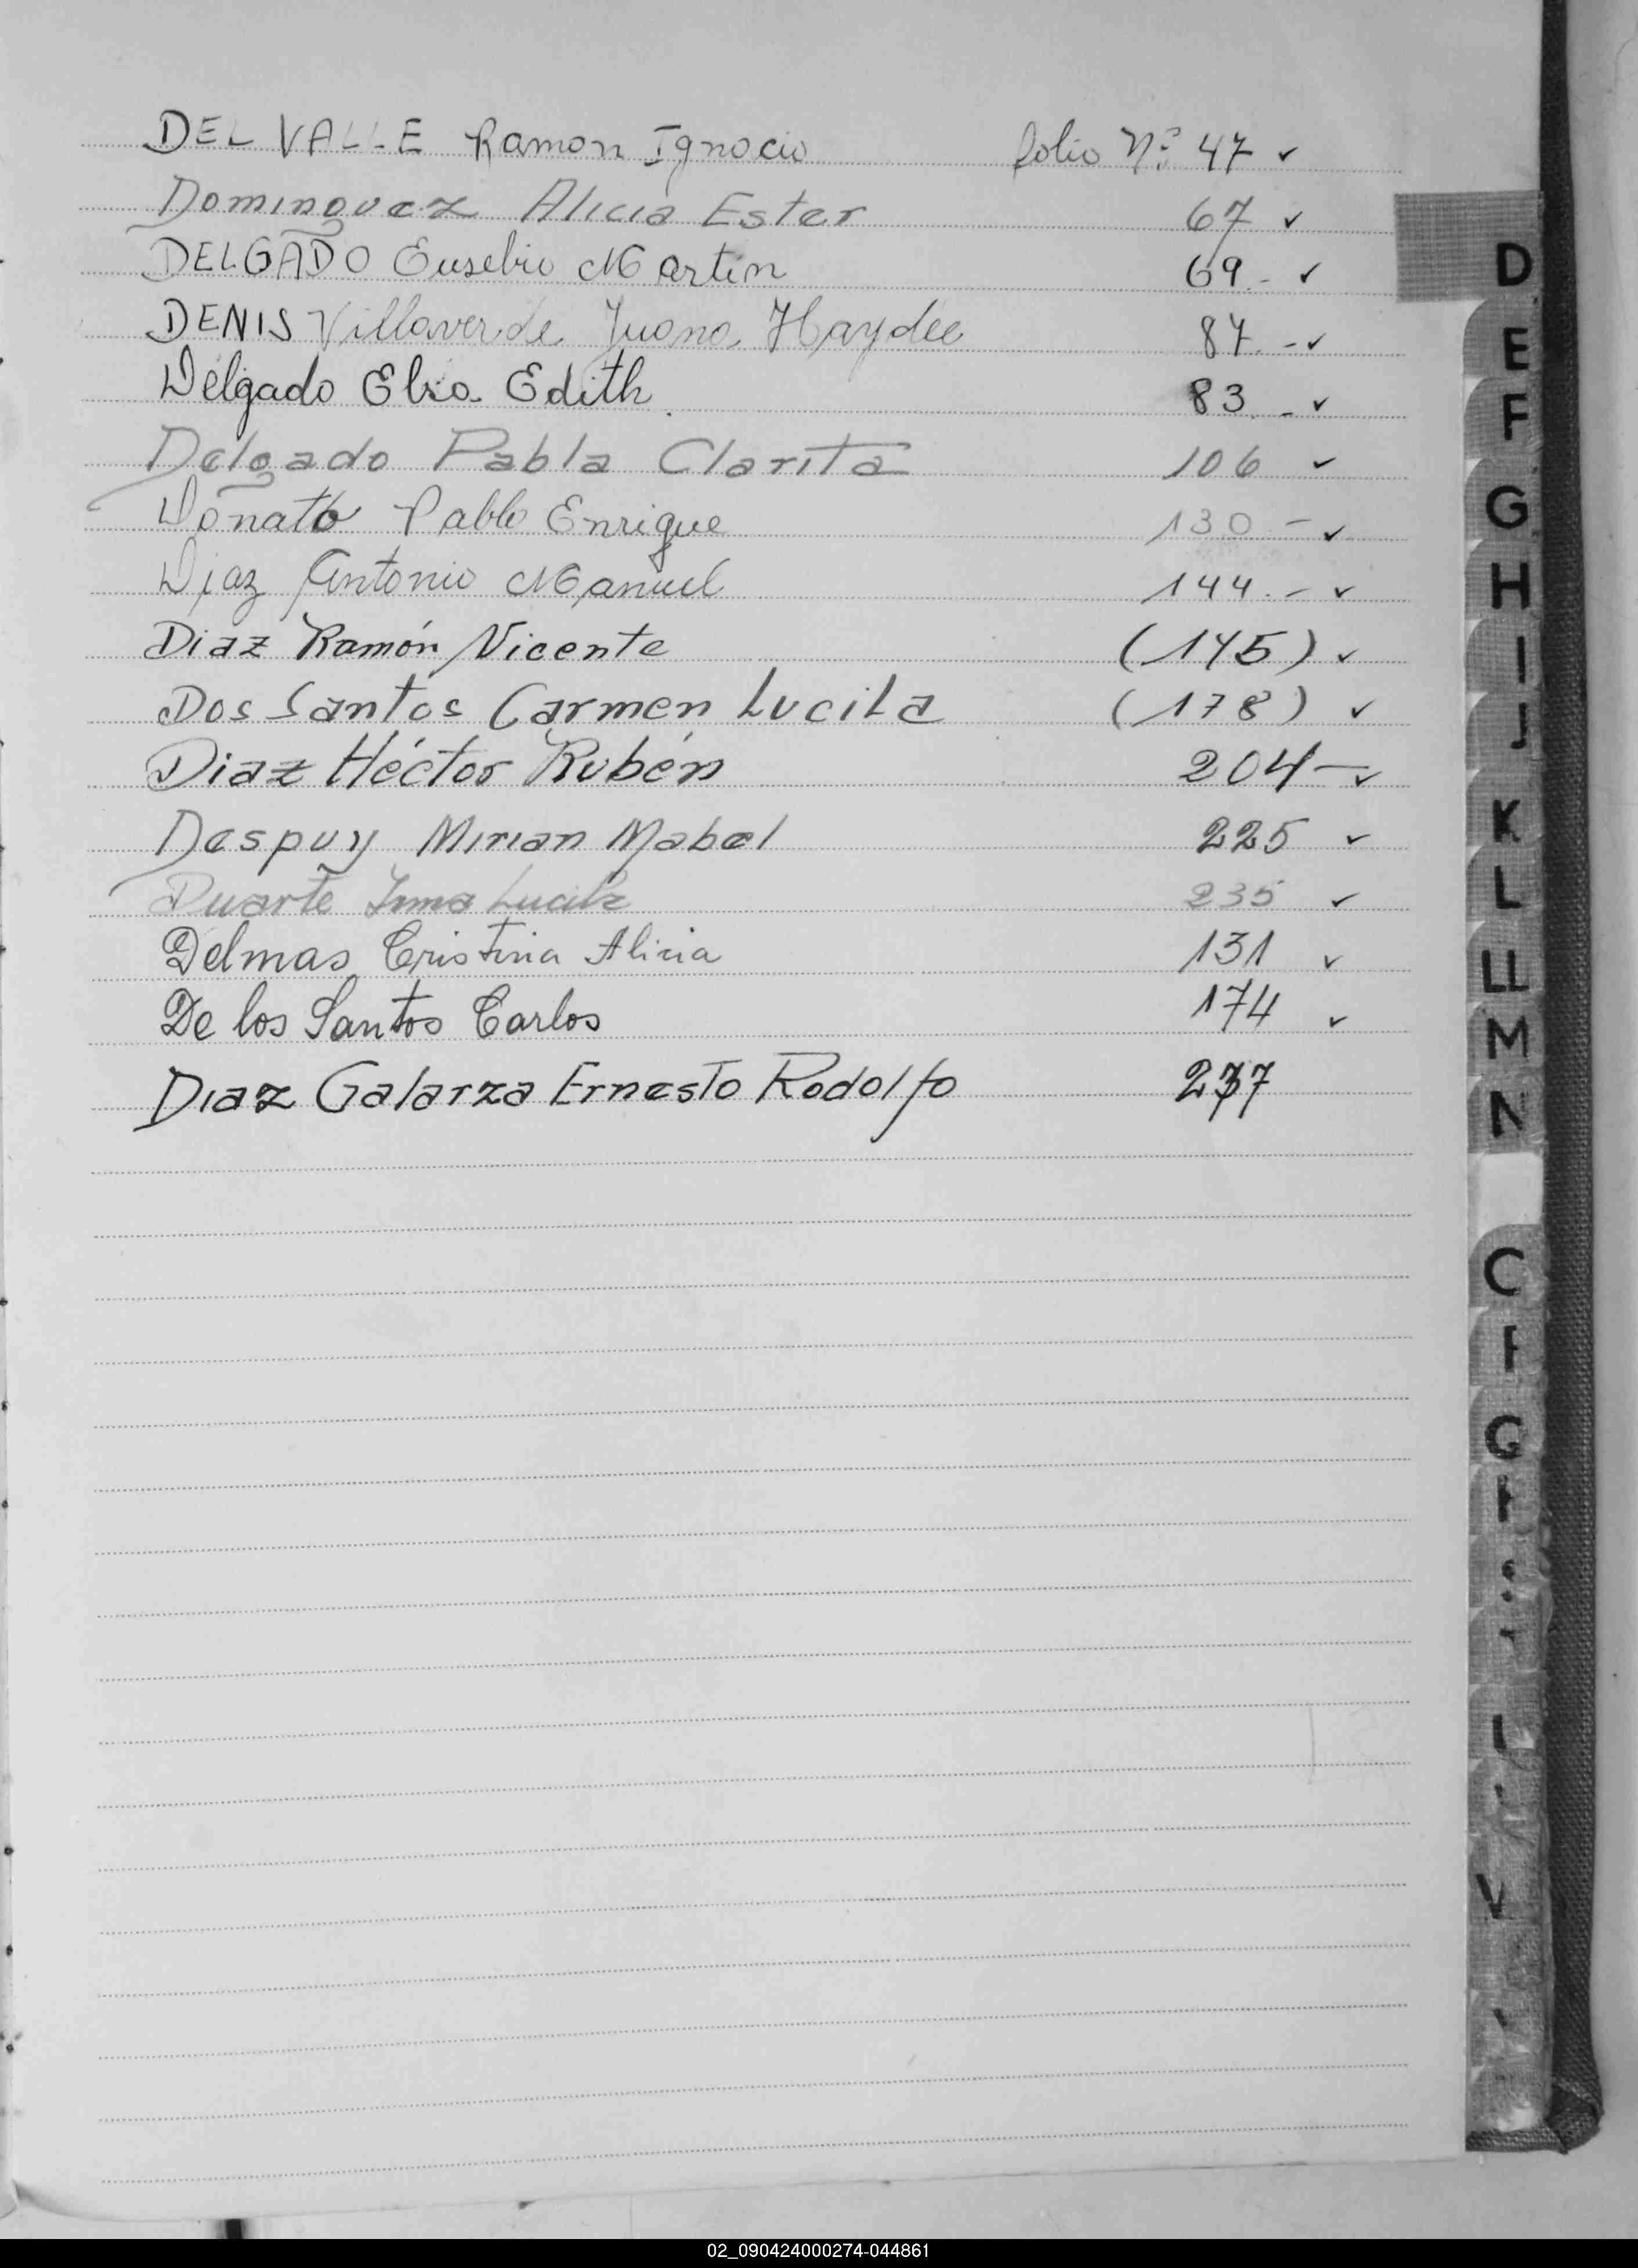 DEL VALLE Ramon Ignacio folio Nº 47 ✓
Dominguez Alicia Ester 67 ✓
DELGADO Eusebio Martin 69.- ✓
DENIS Villaverde Juana Haydee 87.-✓
Delgado Elsa Edith. 83.-✓
Delgado Pabla Clarita 106 ✓
Donato Pablo Enrique 130-✓
Diaz Antonio Manuel 144.-✓
Diaz Ramón Vicente (145) ✓
Dos Santos Carmen Lucila (178) ✓
Diaz Héctor Rubén 204-✓
Despuy Mirian Mabel 225 ✓
Duarte Irma Lucila 235 ✓
Delmas Cristina Alicia 131 ✓
De los Santos Carlos 174 ✓
Diaz Galarza Ernesto Rodolfo 237
D
E
F
G
H
I
J
K
L
LL
M
N
V
02_090424000274-044861